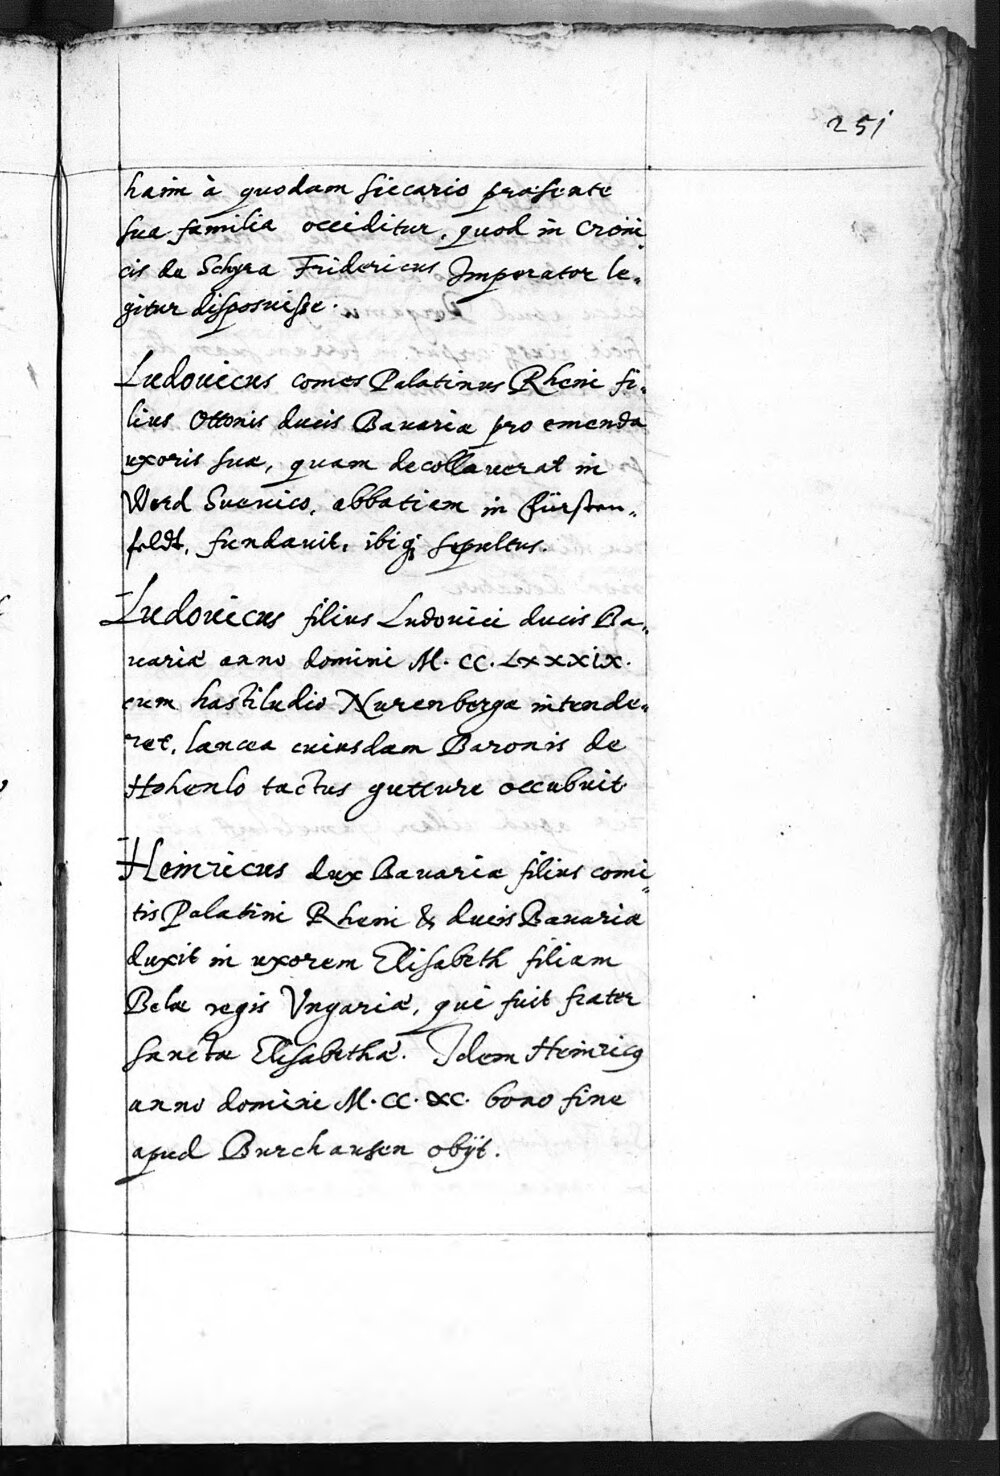 251
haim à quodam siccario præsente
sua familia occiditur, quod in croni„
cis de Schyra Fridericus Imperator le„
gitur disposuisse.
Ludouicus comes Palatinus Rheni fi„
lius Ottonis ducis Bauariæ pro emenda
uxoris suæ, quam decollauerat in
Werd Sueuico, abbatiam in Fürsten„
feldt, fundauit, ibiq; sepultus.
Ludouicus filius Ludouici ducis Ba„
uariæ anno domini M. CC. LXXXIX.
cum hastiludio Nurenbergæ intende„
ret, lancea cuiusdam Baronis de
Hohenlo tactus gutture occubuit
Heinricus dux Bauariæ filius comi„
tis Palatini Rheni & ducis Bauariæ
duxit in uxorem Elisabeth filiam
Belæ regis Vngariæ, qui fuit frater
sanctæ Elisabethæ. Idem Heinricq
anno domini M. CC. XC. bono fine
apud Burchausen obijt.